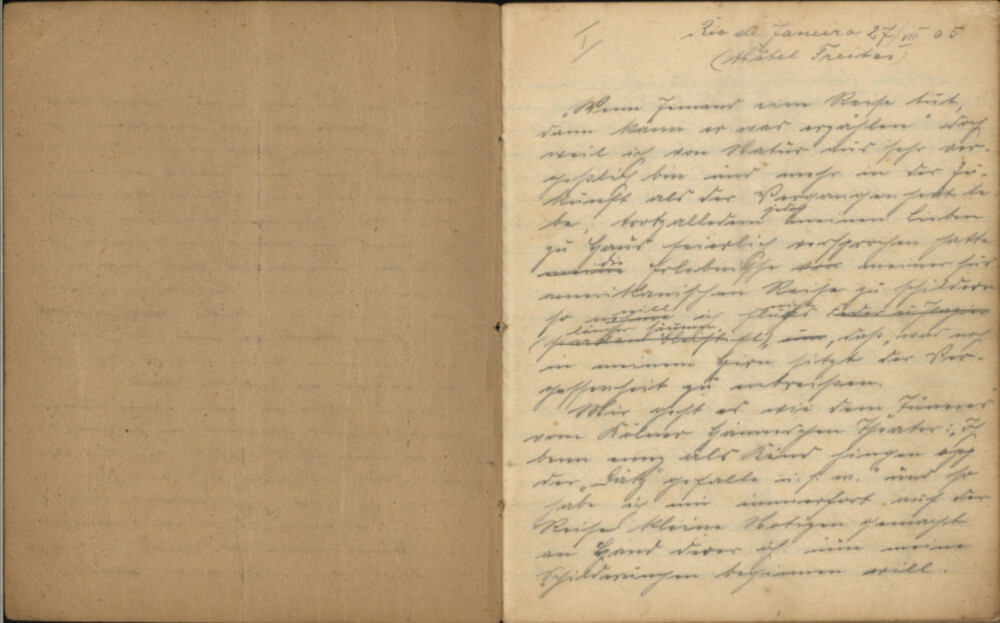 I
Rio de Janeiro 27/VII 05
(Hôtel Freitas)
„Wenn Jemand eine Reise tut,
dann kann er was erzählen" doch
weil ich von Natur aus sehr ver-
geßlich bin und mehr in der Zu-
kunft als der Vergangenheit le
be, trotzalledem jedoch meinen Lieben
zu Haus feierlich versprochen hatte
meine die Erlebnisse von meiner süd
amerikanischen Reise zu schildern
so will ich nicht
länger säumen, daß, was noch
in meinem Hirn sitzt der Ver-
gessenheit zu entreißen.
Mir geht es wie dem „Tünnes
vom Kölner Hännischen Theater: „I
benn ens als Kind hingen opp
der „Dätz" gefalle u. s. w." und so
habe ich mir immerfort auf der
Reise kleine Notizen gemacht
an Hand derer ich nun meine
Schilderungen beginnen will.